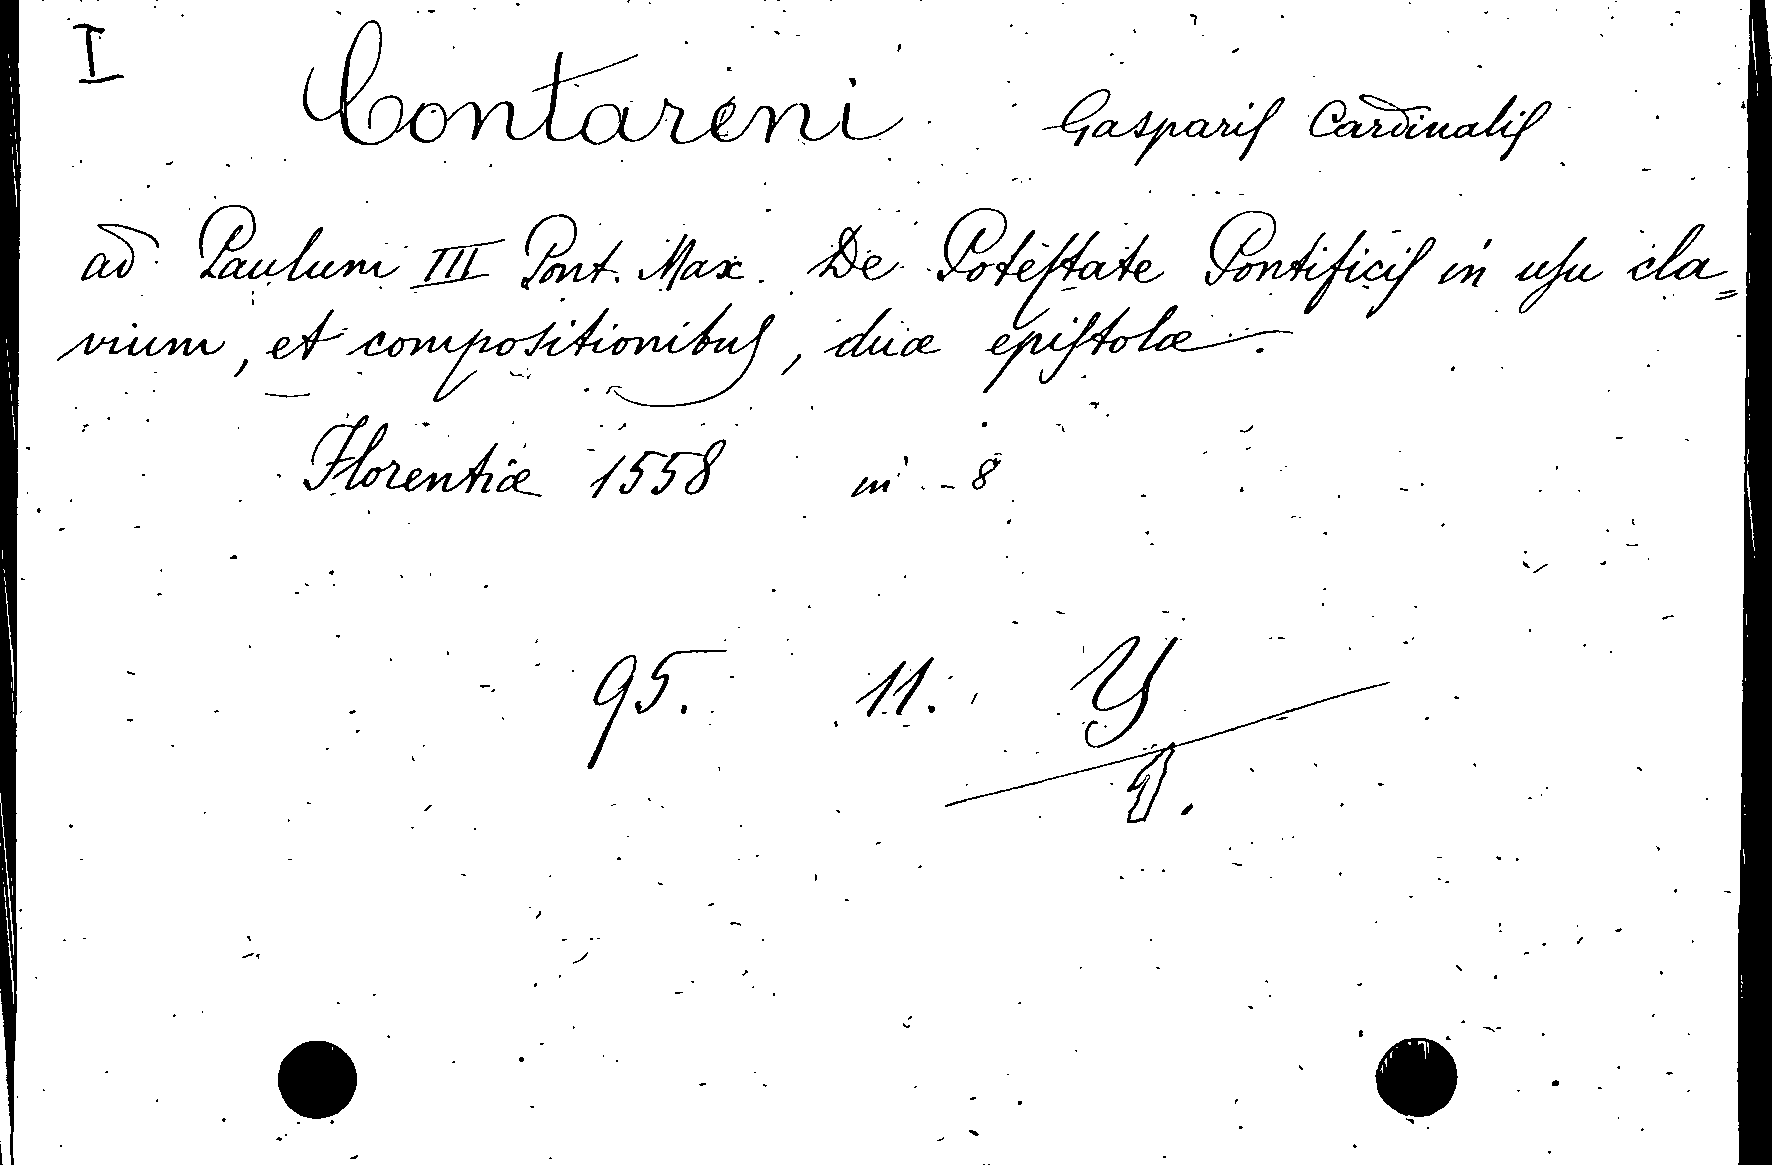 I
Contareni Gasparis Cardinalis
ad Paulum III Pont. Max. De Potestate Pontificis in usu cla=
vium, et compositionibus, duæ epistolæ.
Florentiæ 1558 in - 8
95. 11. Y